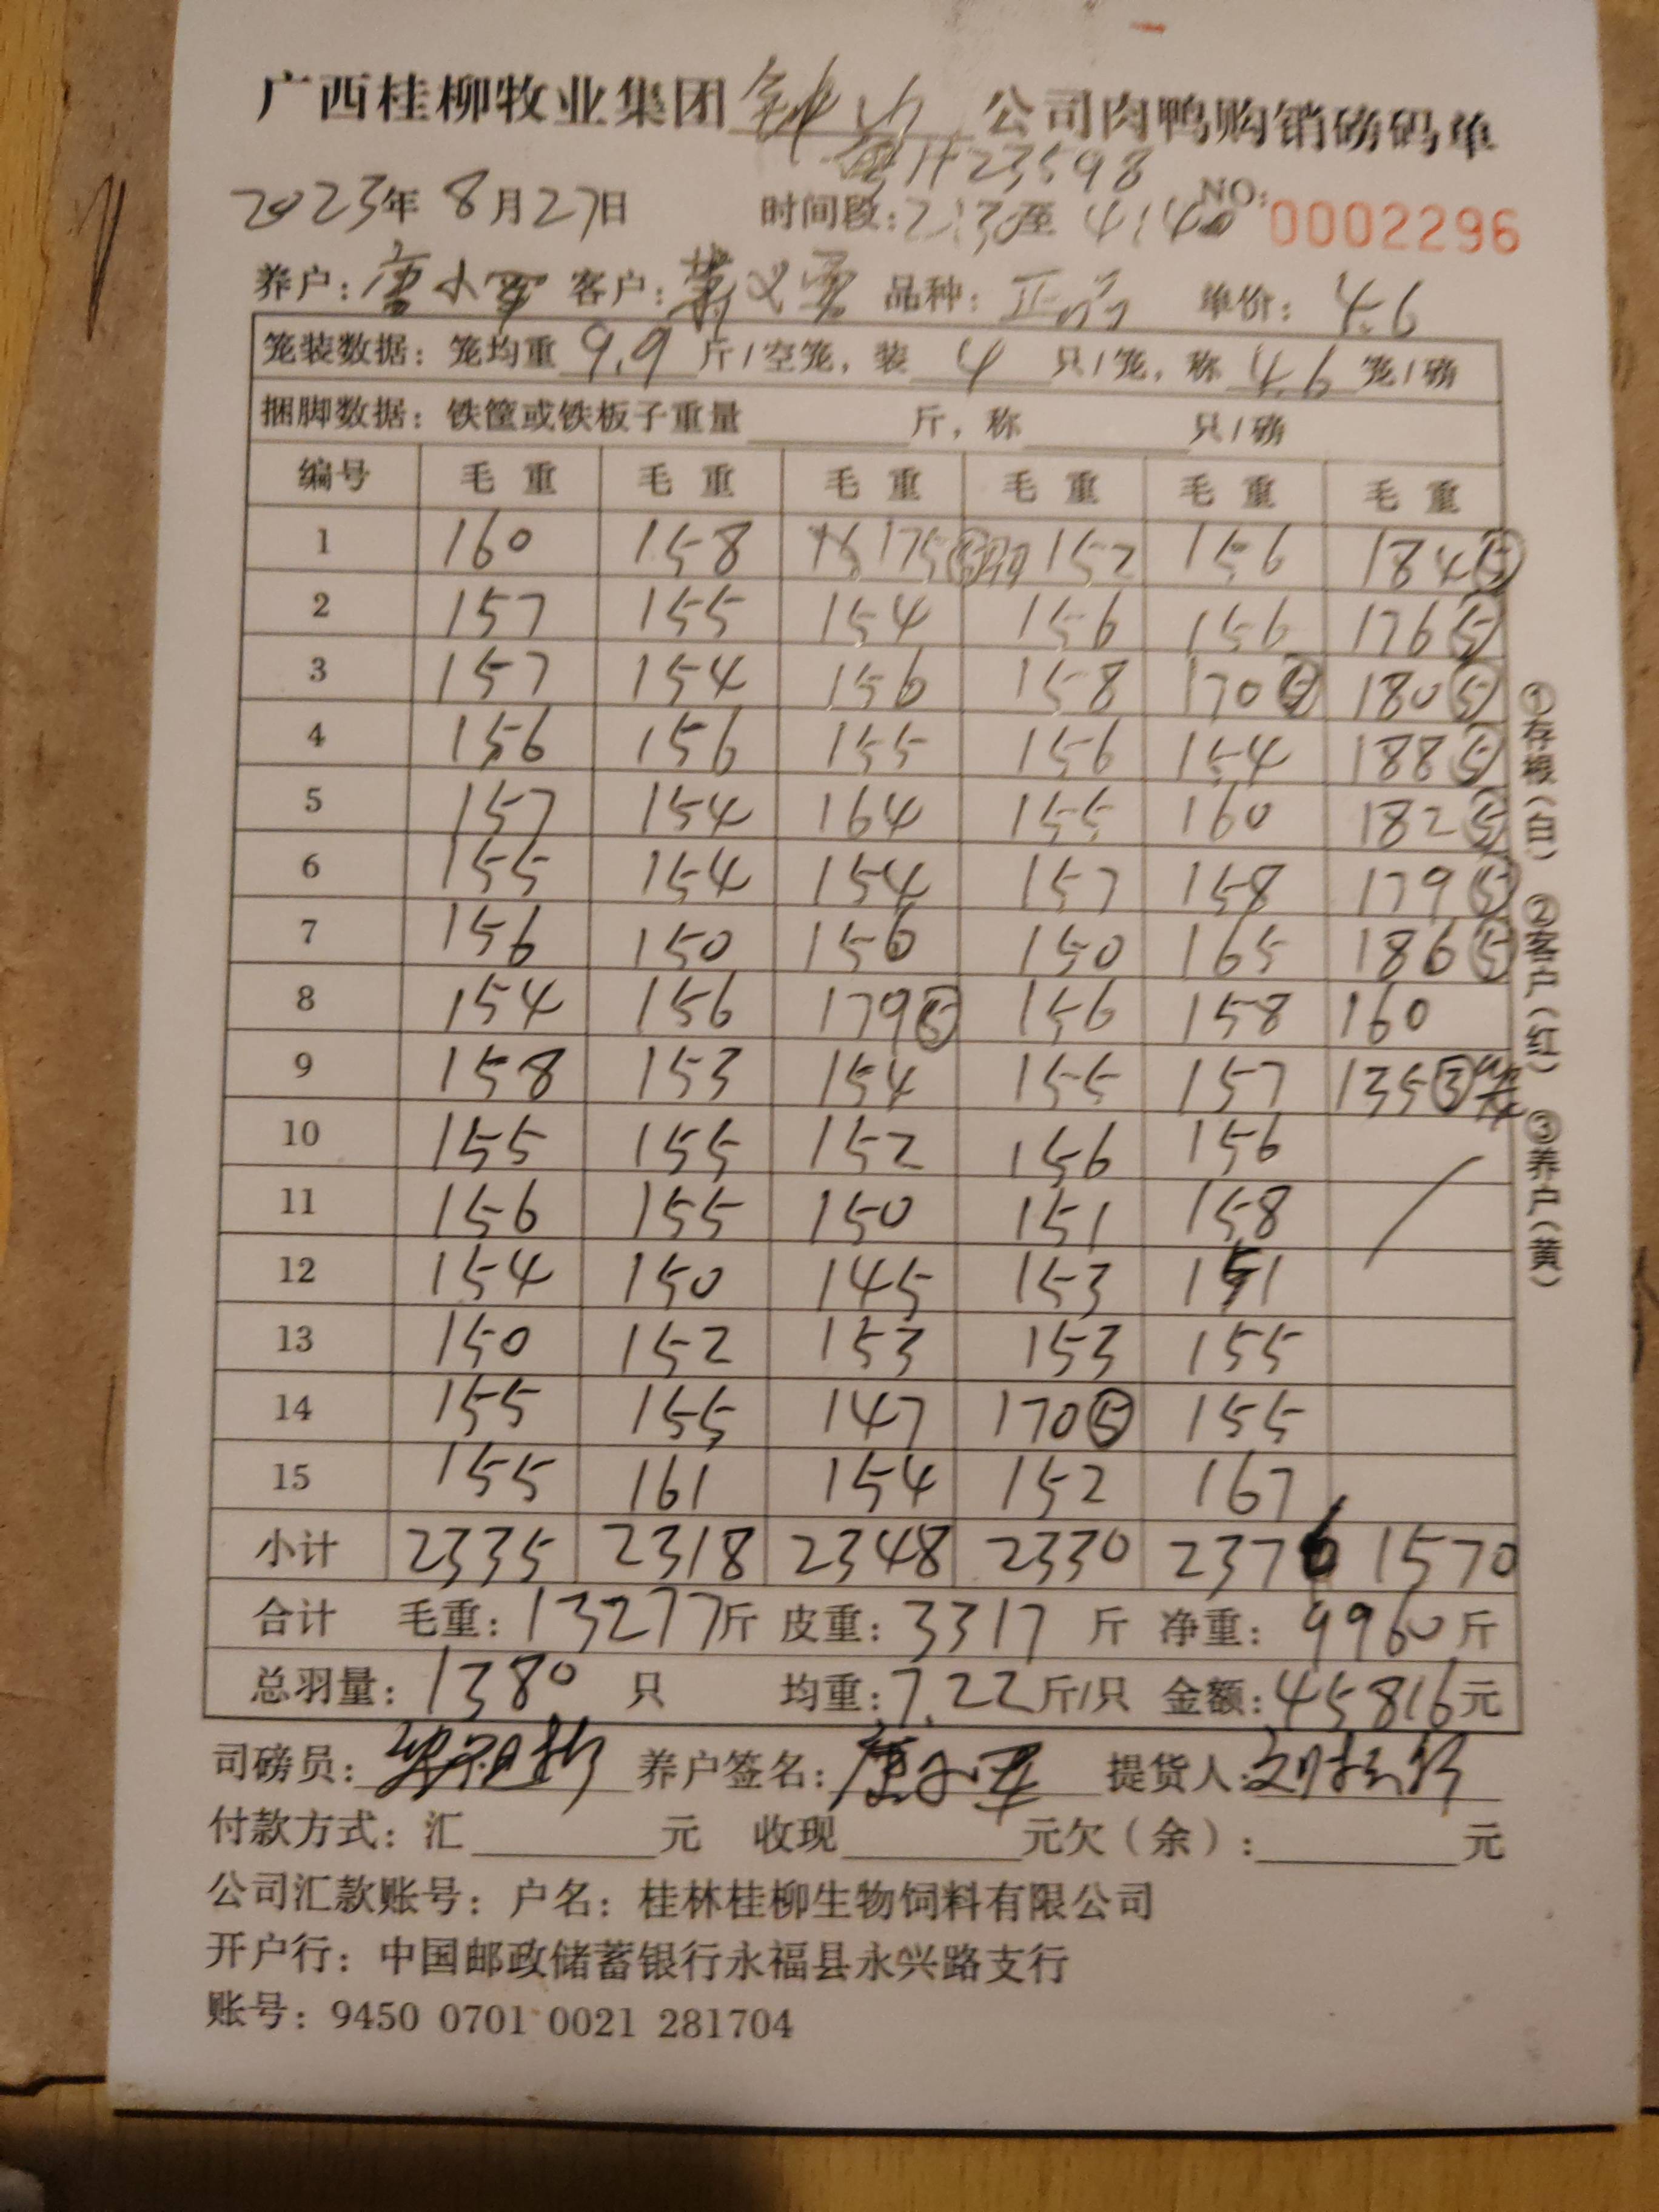 广西桂柳牧业集团钟山公司肉鸭购销磅码单
H23598
2023年8月27日 时间段:2:30至4:40 NO: 0002296
养户: 唐小军 客户: 品种: 正品 单价: 4.6
笼装数据: 笼均重9.9斤/空笼, 装4只/笼, 称 笼/磅
捆脚数据: 铁筐或铁板子重量 斤, 称 只/磅
编号 毛重 毛重 毛重 毛重 毛重 毛重
1 160 158 175⑤ 152 156 184⑤
2 157 155 154 156 156 176⑤
3 157 154 156 158 170⑤ 180⑤
4 156 156 155 156 154 188⑤
5 157 154 164 155 160 182⑤
6 155 154 154 157 158 179⑤
7 156 150 156 150 165 186⑤
8 154 156 179⑤ 156 158 160
9 158 153 154 155 157 135③
10 155 155 152 156 156
11 156 155 150 151 158
12 154 150 145 153 151
13 150 152 153 153 155
14 155 155 147 170⑤ 155
15 155 161 154 152 167
小计 2335 2318 2348 2330 2376 1570
合计 毛重: 13277斤 皮重: 3317斤 净重: 9960斤
总羽量: 1380只 均重: 7.22斤/只 金额: 45816元
司磅员: 养户签名: 唐小军 提货人:
付款方式: 汇 元 收现 元欠(余): 元
公司汇款账号: 户名: 桂林桂柳生物饲料有限公司
开户行: 中国邮政储蓄银行永福县永兴路支行
账号: 9450 0701 0021 281704
①存根(白) ②客户(红) ③养户(黄)